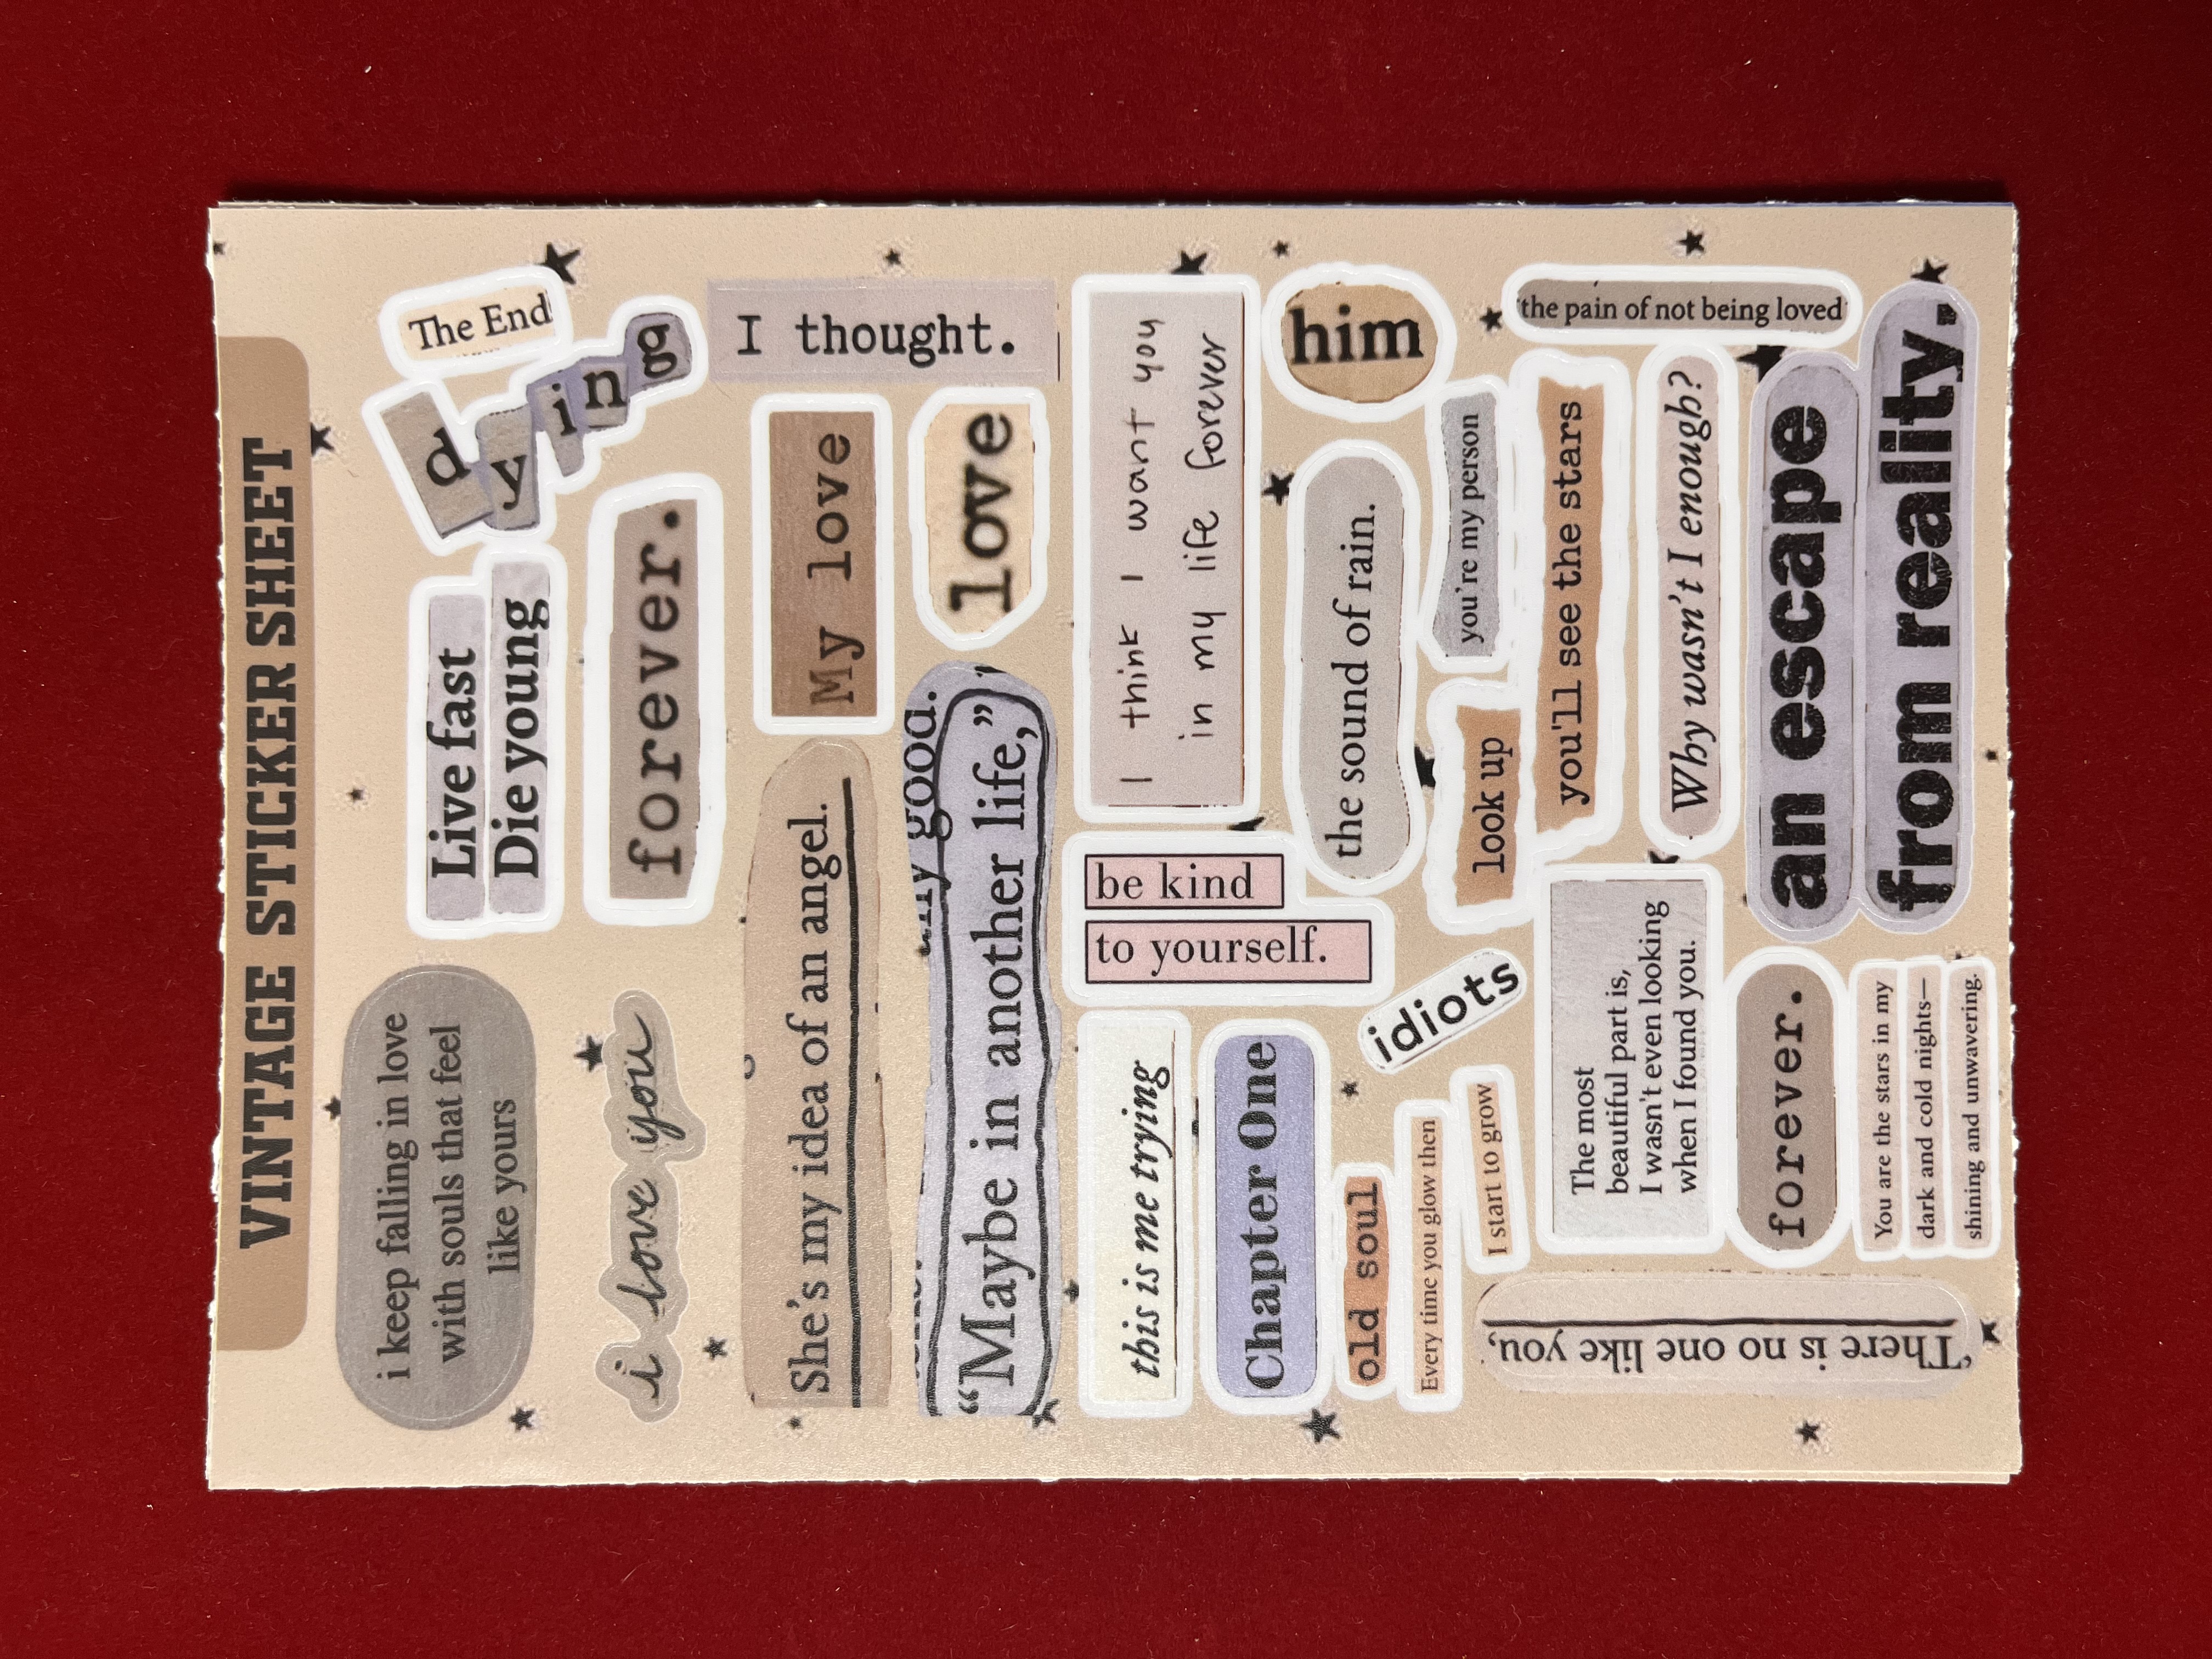 VINTAGE STICKER SHEET
i keep falling in love
with souls that feel
like yours
Live fast
Die young
dying
The End
i love you
forever.
She's my idea of an angel.
My love
I thought.
good.
“Maybe in another life,”
love
this is me trying
be kind
to yourself.
I think I want you
in my life forever
Chapter One
the sound of rain.
him
old soul
idiots
Every time you glow then
I start to grow
look up
you'll see the stars
you're my person
the pain of not being loved
The most
beautiful part is,
I wasn't even looking
when I found you.
Why wasn't I enough?
an escape
from reality.
forever.
You are the stars in my
dark and cold nights—
shining and unwavering.
‘There is no one like you,